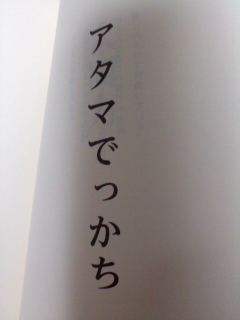 アタマでっかち